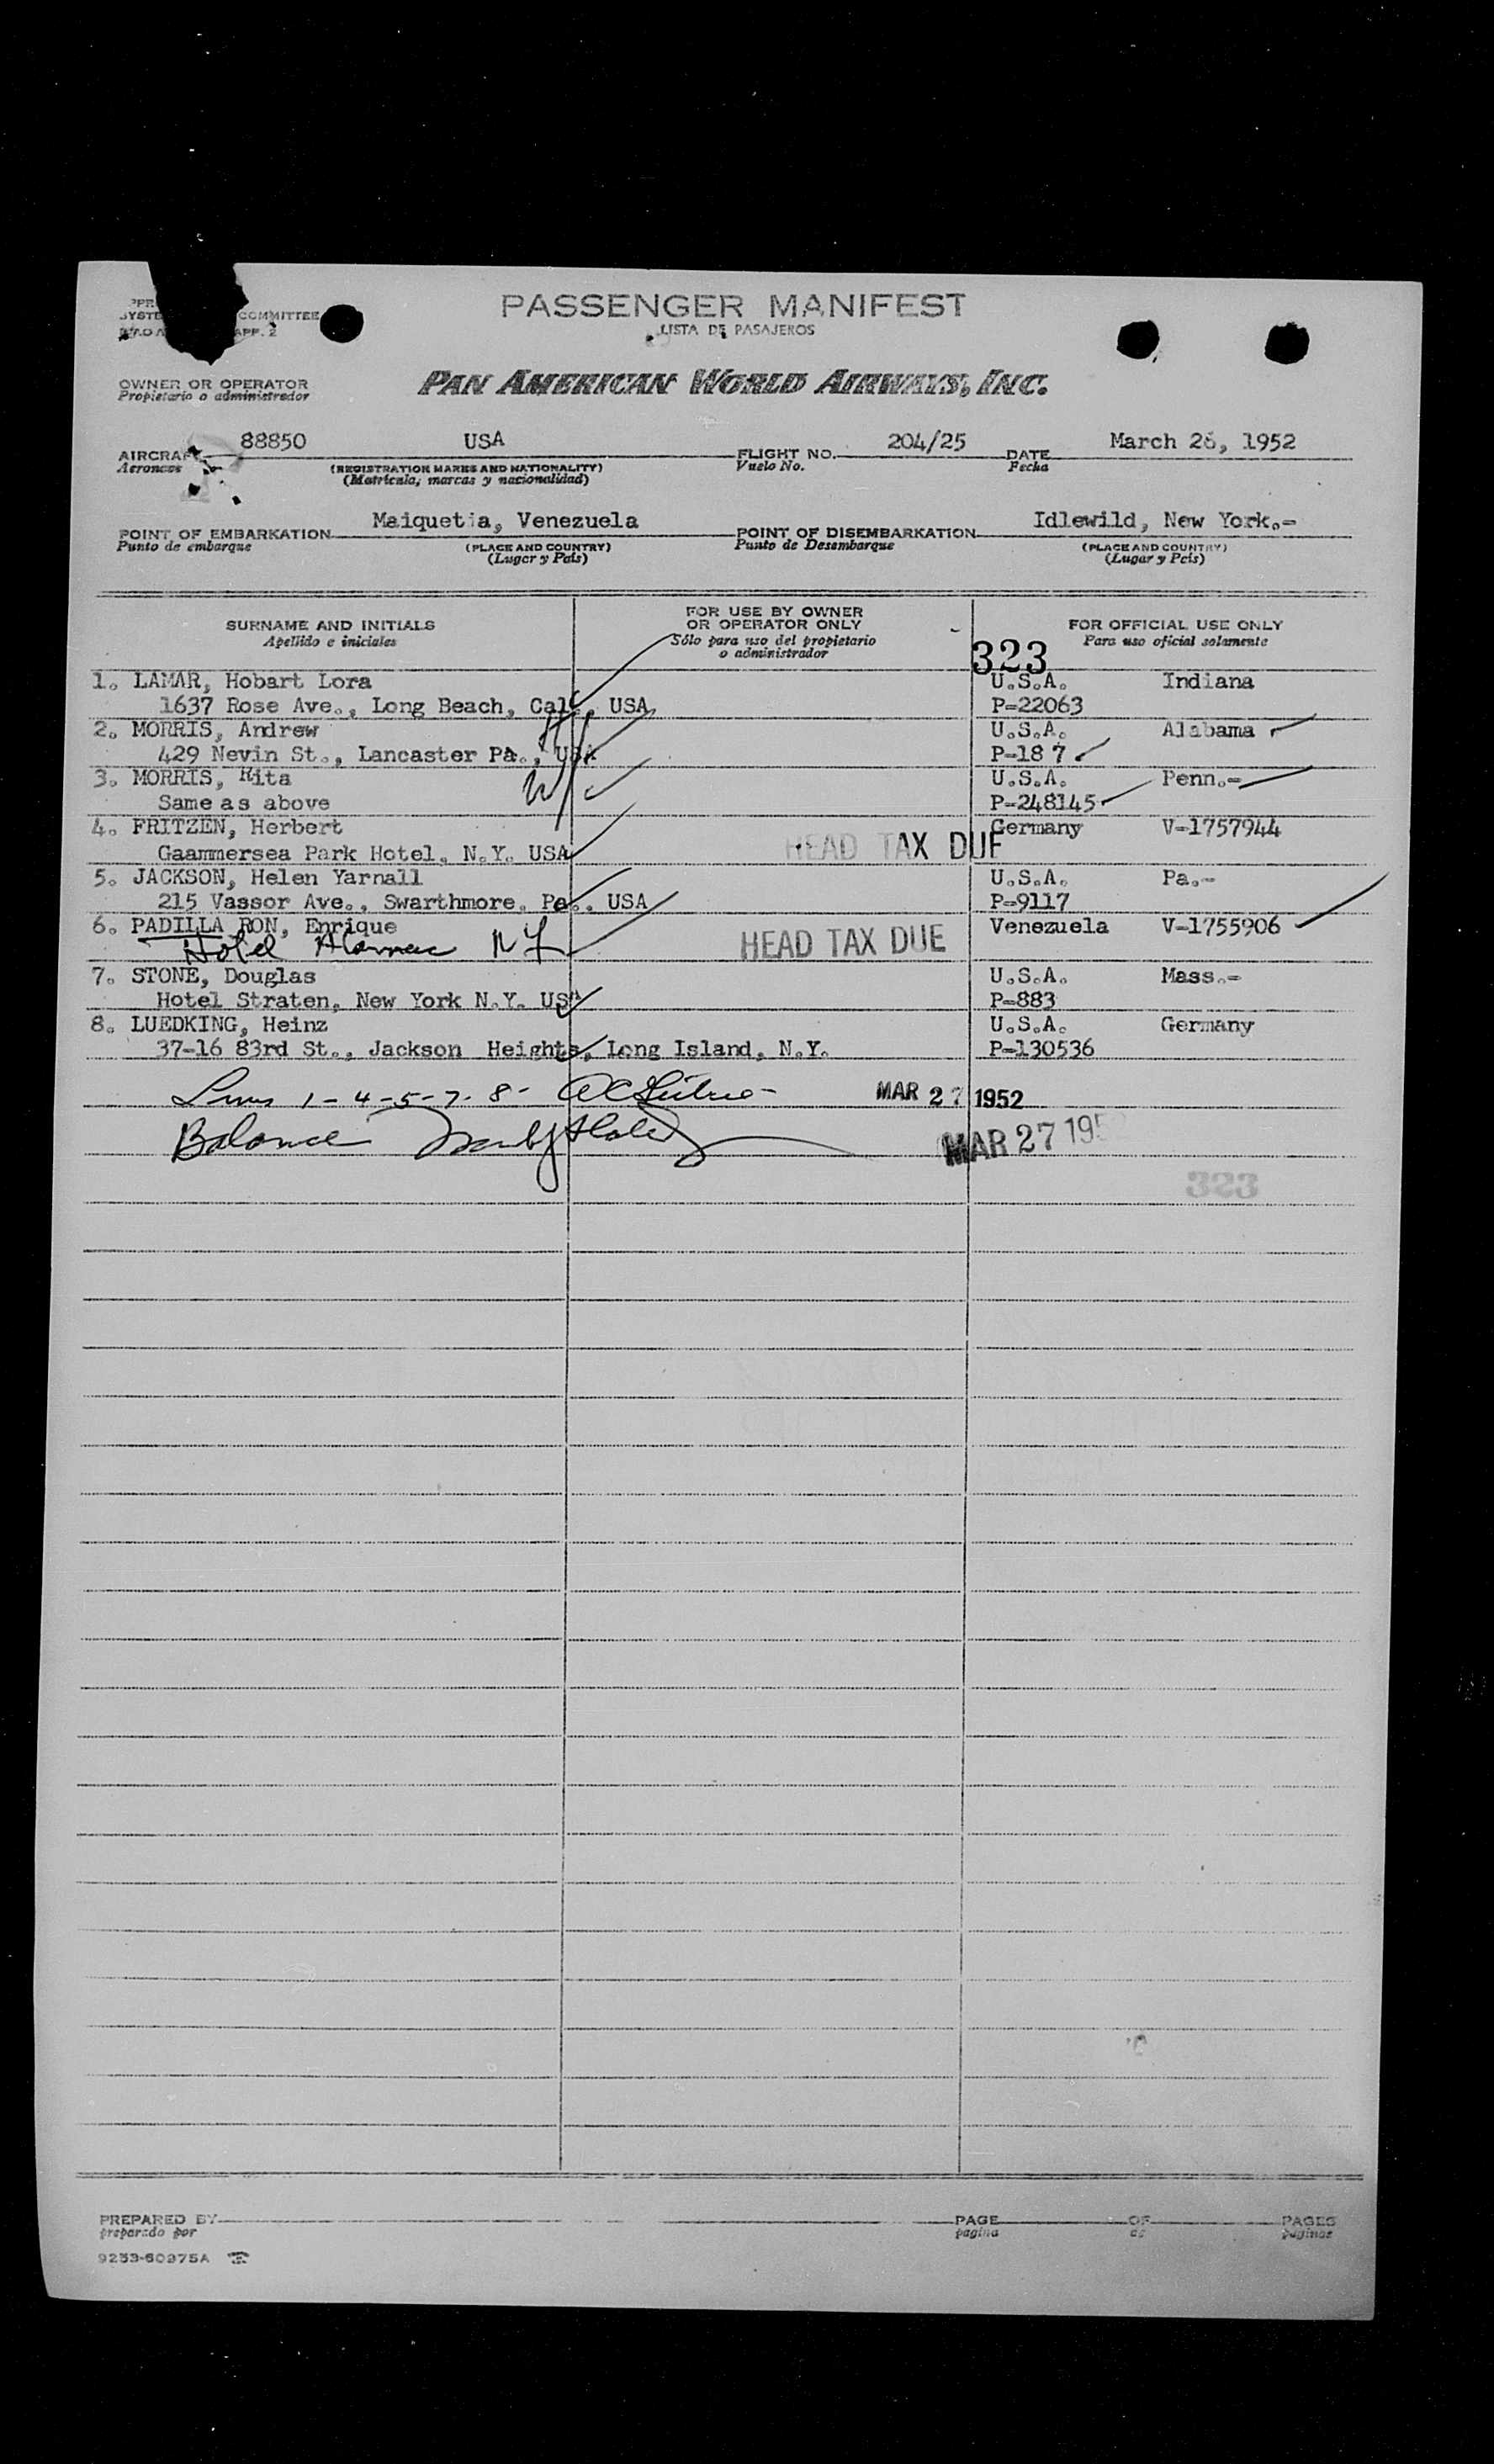 PASSENGER MANIFEST
LISTA DE PASAJEROS
COMMITTEE
APP. 2
OWNER OR OPERATOR
Propietario o administrador
PAN AMERICAN WORLD AIRWAYS, INC.
AIRCRAFT 88850 USA FLIGHT NO. 204/25 DATE March 26, 1952
Aeronave (REGISTRATION MARKS AND NATIONALITY) Vuelo No. Fecha
(Matrícula, marcas y nacionalidad)
POINT OF EMBARKATION Maiquetia, Venezuela POINT OF DISEMBARKATION Idlewild, New York.-
Punto de embarque (PLACE AND COUNTRY) Punto de Desembarque (PLACE AND COUNTRY)
(Lugar y País) (Lugar y País)
SURNAME AND INITIALS FOR USE BY OWNER OR OPERATOR ONLY FOR OFFICIAL USE ONLY
Apellido e iniciales Sólo para uso del propietario o administrador Para uso oficial solamente
323
1. LAMAR, Hobart Lora U.S.A. Indiana
1637 Rose Ave., Long Beach, Cal., USA P-22063
2. MORRIS, Andrew U.S.A. Alabama
429 Nevin St., Lancaster Pa., USA P-18 7
3. MORRIS, Rita U.S.A. Penn.-
Same as above P-248145
4. FRITZEN, Herbert Germany V-1757944
Gaammersea Park Hotel, N.Y. USA HEAD TAX DUE
5. JACKSON, Helen Yarnall U.S.A. Pa.-
215 Vassor Ave., Swarthmore, Pa., USA P-9117
6. PADILLA RON, Enrique Venezuela V-1755906
Hotel Alamac N Y HEAD TAX DUE
7. STONE, Douglas U.S.A. Mass.-
Hotel Straten, New York N.Y. USA P-883
8. LUEDKING, Heinz U.S.A. Germany
37-16 83rd St., Jackson Heights, Long Island, N.Y. P-130536
1-4-5-7-8- MAR 27 1952
Balance MAR 27 195
323
PREPARED BY PAGE OF PAGES
preparado por página de páginas
9233-60975A